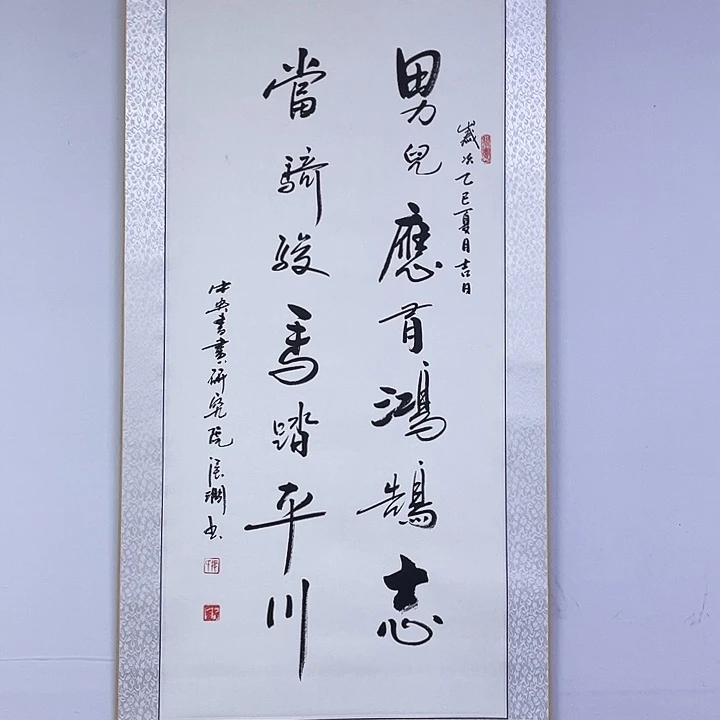 歲次乙巳夏月吉日
男兒應有鴻鵠志
當騎駿馬踏平川
中央書畫研究院 張潤書